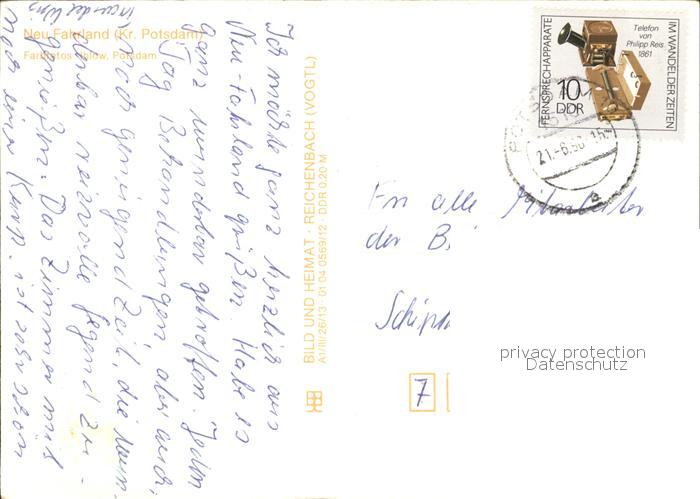 Neu Fahrland (Kr. Potsdam)
Potsdam
BILD UND HEIMAT · REICHENBACH (VOGTL)
A1/III/26/13 · 01 04 0569/12 · DDR 0,20 M
Ich möchte ganz herzlich aus
Neu-Fahrland grüßen. Habe es
ganz wunderbar getroffen. Jeden
Tag Behandlungen aber auch
noch genügend Zeit, die wun-
derbar reizvolle Gegend zu
genießen. Das Zimmer mit
noch einer ist sehr schön
FERNSPRECHAPPARATE
IM WANDEL DER ZEITEN
Telefon
von
Philipp Reis
1861
10
DDR
21.-6.90
An alle Mitarbeiter
der
7
privacy protection
Datenschutz